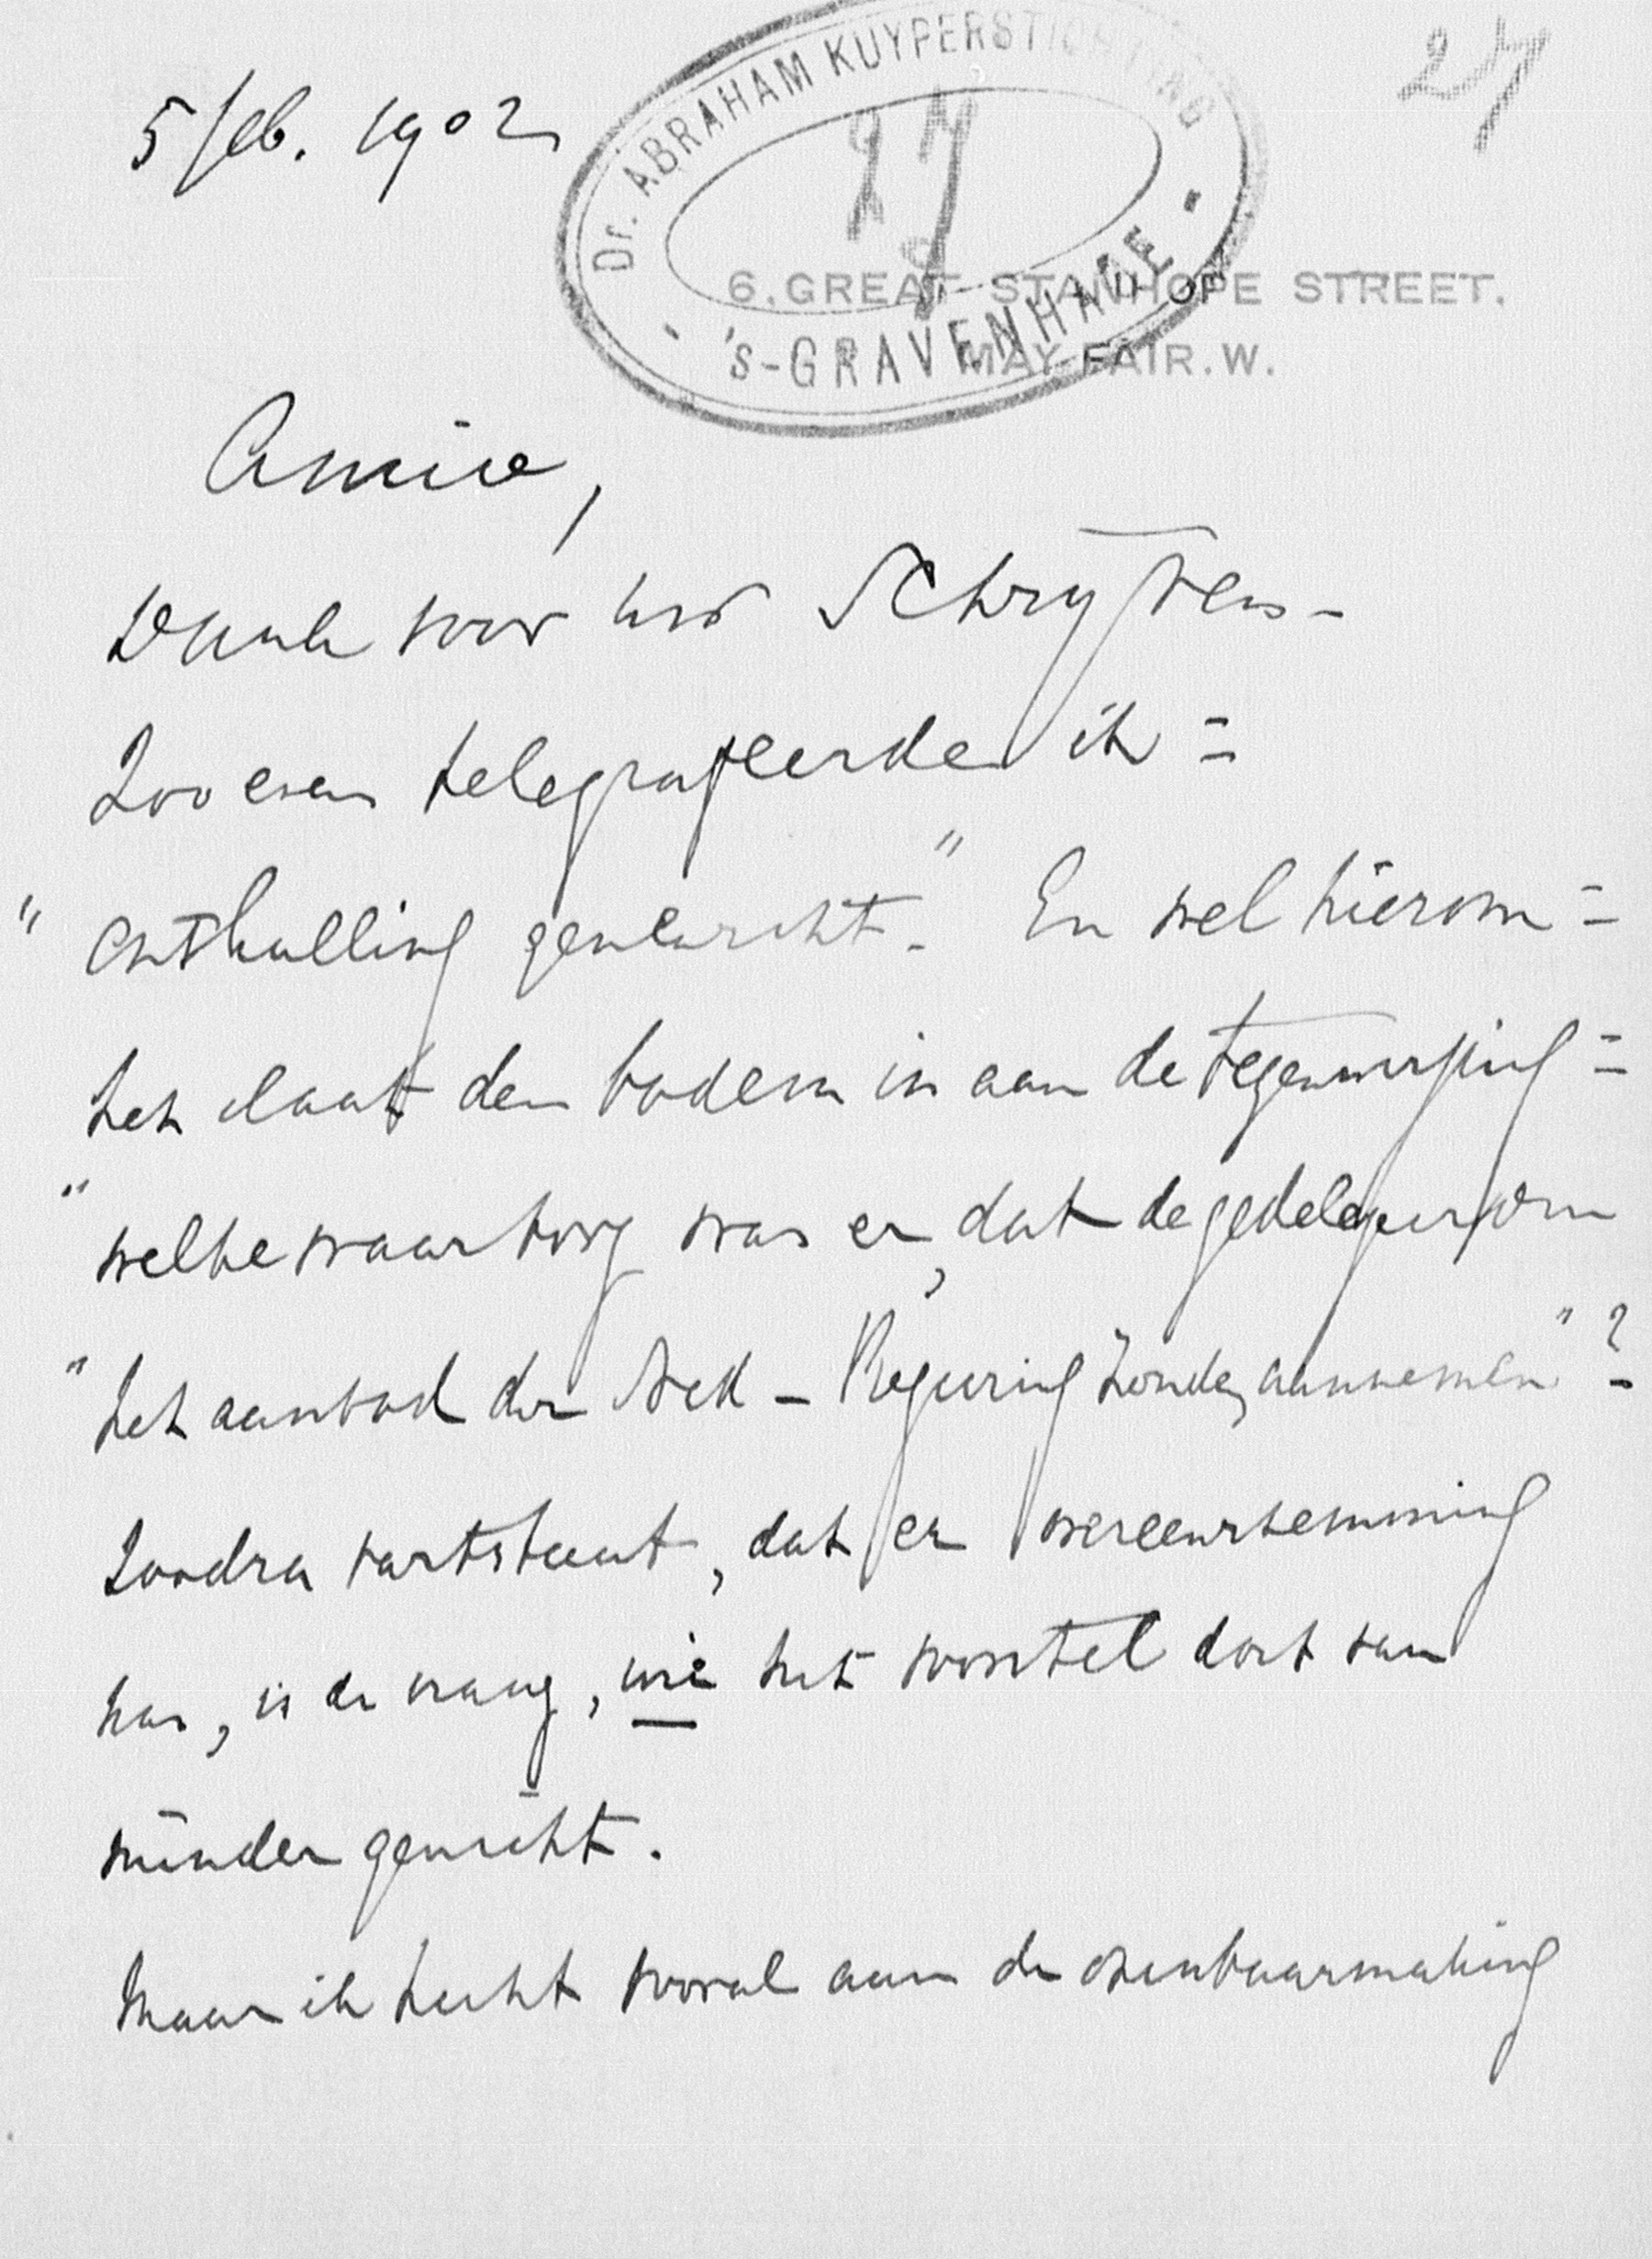 5 feb. 1902
27
Dr. ABRAHAM KUYPERSTICHTING
27
'S-GRAVENHAGE
6, GREAT STANHOPE STREET.
MAY FAIR. W.
Amice,
Dank voor uw Schryvens -
Zoo even telegrafeerde ik =
" onthulling gewenscht. " En wel hierom =
het slaat den bodem in aan de tegenwerping =
" welke waarborg was er, dat de gedelegeerden
" het aanbod der Ned - Regeering zouden aannemen " ?
Zoodra vaststaat, dat er overeenstemming
was, is de vraag, wie het voorstel doet van
minder gewicht.
Maar ik hecht vooral aan de openbaarmaking